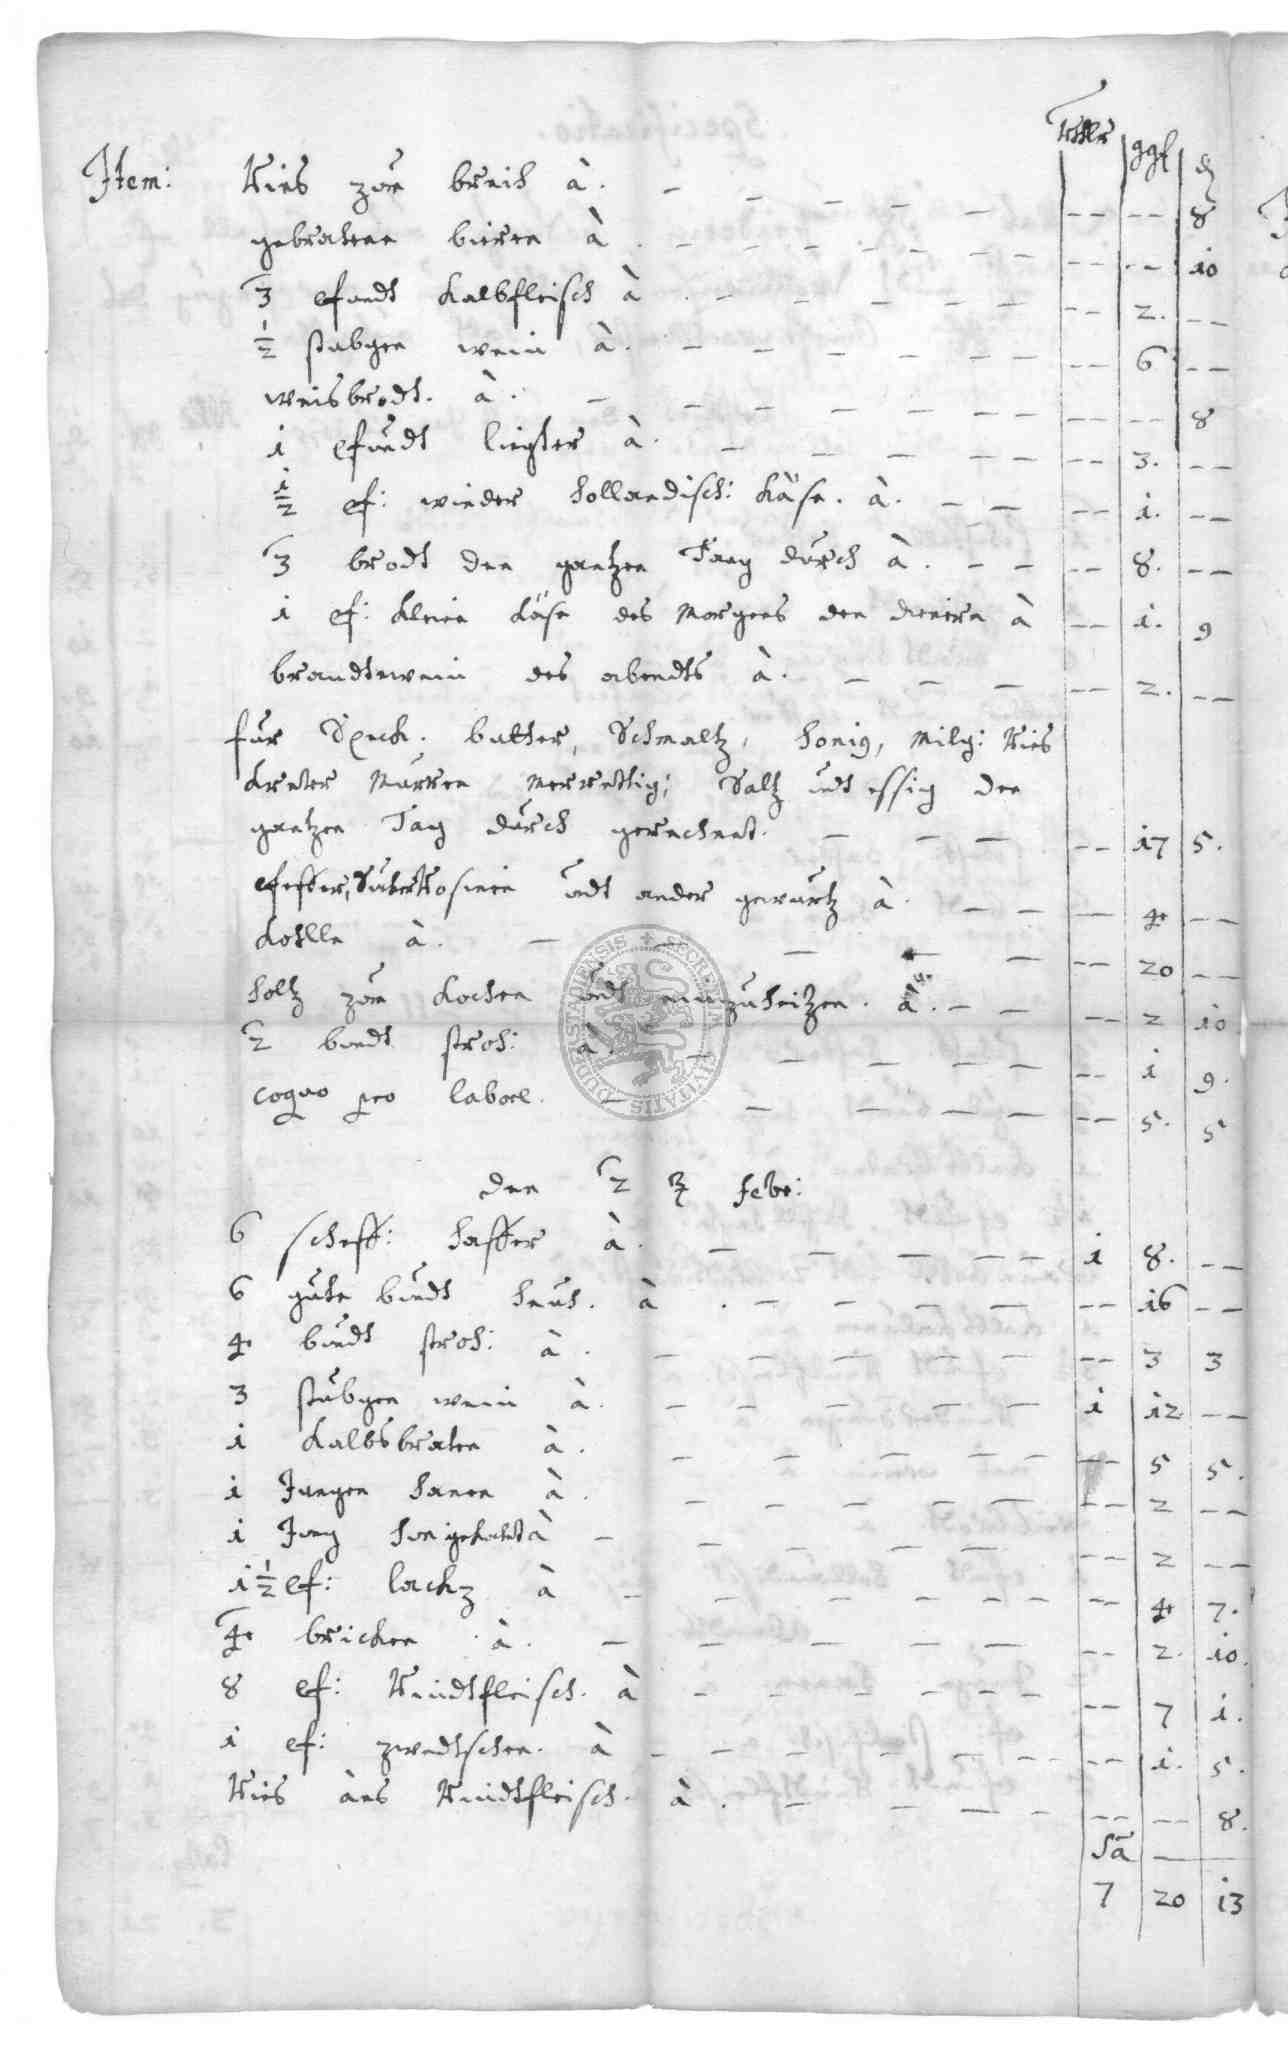 Rthlr ggl d
Item: Ries zum breih à. – – – – – – – 8
gebratene birren à. – – – – – – – 10
3 Pfundt Kalbfleisch à. – – – – – – 2. –
½ stubgen wein à. – – – – – – 6 –
weisbrodt. à. – – – – – – – 8
1 Pfundt liegter à. – – – – – – 3. –
½ Pf: wieder hollandisch: Käse. à. – – – 1. –
3 brodt den gantzen Tang durch à. – – – 8. –
1 Pf: kleine Käse des Morgens den dienern à – 1. 9
brandtewein des abendts à. – – – – 2. –
für Speck. butter, Schmaltz, honig, Milg: Ries
kreter Murren Merrettig; Saltz undt essig den
gantzen Tag durch gerechnet. – – – – 17 5.
Pfeffer, Rosinen undt ander gewürtz à. – – – 4 –
Kohlle à. – – – – – – 20 –
holtz zum Kochen undt einzuheitzen. à. – – – 2 10
2 bundt stroh: à. – – – – – – 1 9.
coquo pro labore. – – – – – – 5. 5
den 2 3 febr:
6 scheff: haffer à. – – – – – 1 8. –
6 gute bundt heuh. à. – – – – – – 16 –
4 bundt stroh: à. – – – – – – – 3 3
3 stübgen wein à. – – – – – – 1 12. –
1 Kalbsbraten à. – – – – – – 5 5.
1 Jungen hanen à. – – – – – – 2 –
1 Jung hon gekocht à – – – – – – – 2 –
1½ Pf: lachz à – – – – – – – – 4 7.
4 bricken à. – – – – – – 2. 10.
8 Pf: Rindtfleisch. à – – – – – – – 7 1.
1 Pf: zwedtschen. à – – – – – – – – 1. 5.
Ries ans Rindtfleisch. à. – – – – – – 8.
Sa –
7 20 13
SECRETUM CIVITATIS DUDERSTADIENSIS